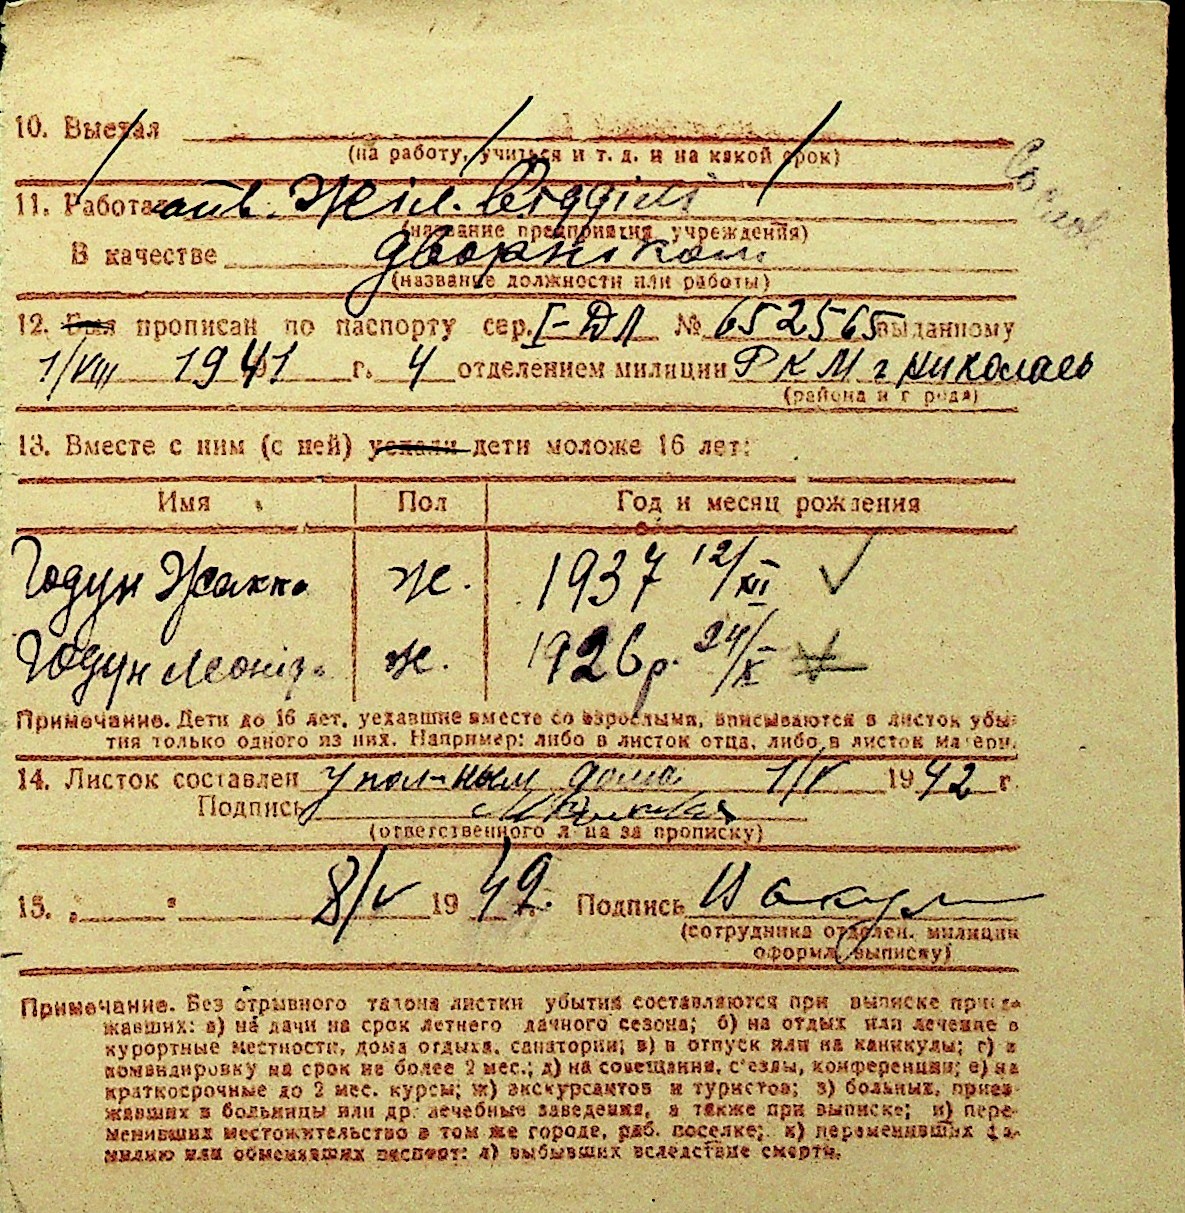 10. Выехал
(на работу, учиться и т. д. и на какой срок)
11. Работает Жіл. відділі
(название предприятия, учреждения)
В качестве дворніком
(название должности или работы)
12. Был прописан по паспорту сер. I-ДЛ № 652565 выданному
1/VIII 1941 г. 4 отделением милиции РКМ г Николаев
(района и города)
13. Вместе с ним (с ней) уехали дети моложе 16 лет:
Имя Пол Год и месяц рождения
Годун Жанна ж. 1937 12/XII
Годун ж. 1926 р. 24/X
Примечание. Дети до 16 лет, уехавшие вместе со взрослыми, вписываются в листок убы-
тия только одного из них. Например: либо в листок отца, либо в листок матери.
14. Листок составлен упол-ным дома 1/V 1942 г.
Подпись
(ответственного лица за прописку)
15. „ “ 8/V 1942 г. Подпись
(сотрудника отделен. милиции
оформл. выписку)
Примечание. Без отрывного талона листки убытия составляются при выписке приез-
жавших: а) на дачи на срок летнего дачного сезона; б) на отдых или лечение в
курортные местности, дома отдыха, санатории; в) в отпуск или на каникулы; г) в
командировку на срок не более 2 мес.; д) на совещания, с'езды, конференции; е) на
краткосрочные до 2 мес. курсы; ж) экскурсантов и туристов; з) больных, приез-
жавших в больницы или др. лечебные заведения, а также при выписке; и) пере-
менивших местожительство в том же городе, раб. поселке; к) переменивших фа-
милию или обменявших паспорт; л) выбывших вследствие смерти.